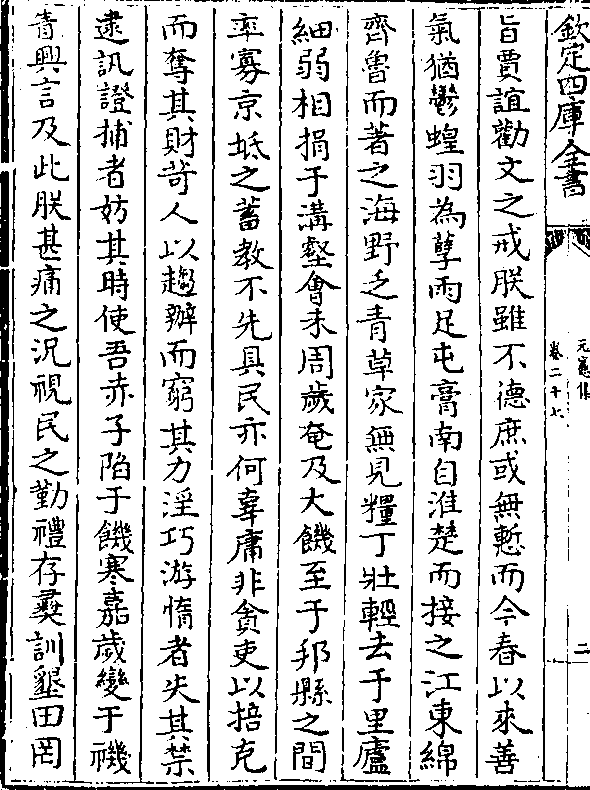 欽定四庫全書
元憲集
卷二十七
二
旨賈誼勸文之戒朕雖不德庶或無慙而今春以來善
氣猶鬱蝗羽為孽雨足屯膏南自淮楚而接之江東綿
齊魯而著之海野乏青草家無見糧丁壯輕去于里廬
細弱相捐于溝壑會未周歲奄及大饑至于邦縣之間
率寡京坻之蓄教不先具民亦何辜庸非貪吏以掊克
而奪其財苛人以趨辦而窮其力淫巧游惰者失其禁
逮訊證捕者妨其時使吾赤子陷于饑寒嘉歲變于禨
眚興言及此朕甚痛之況視民之勤禮存彛訓墾田罔